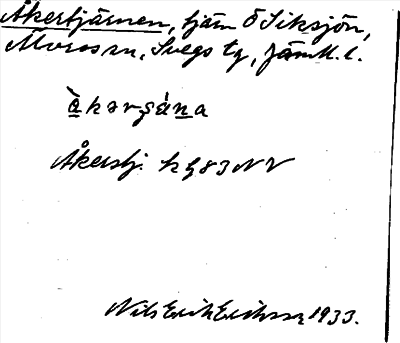 Åkertjärnen, tjärn Ö Siksjön,
Moros sn, Svegs tg, Jämtl. l.
åkərʂána
Åkerstj. k bl 83 NV
Nils Erik Eriksson 1933.